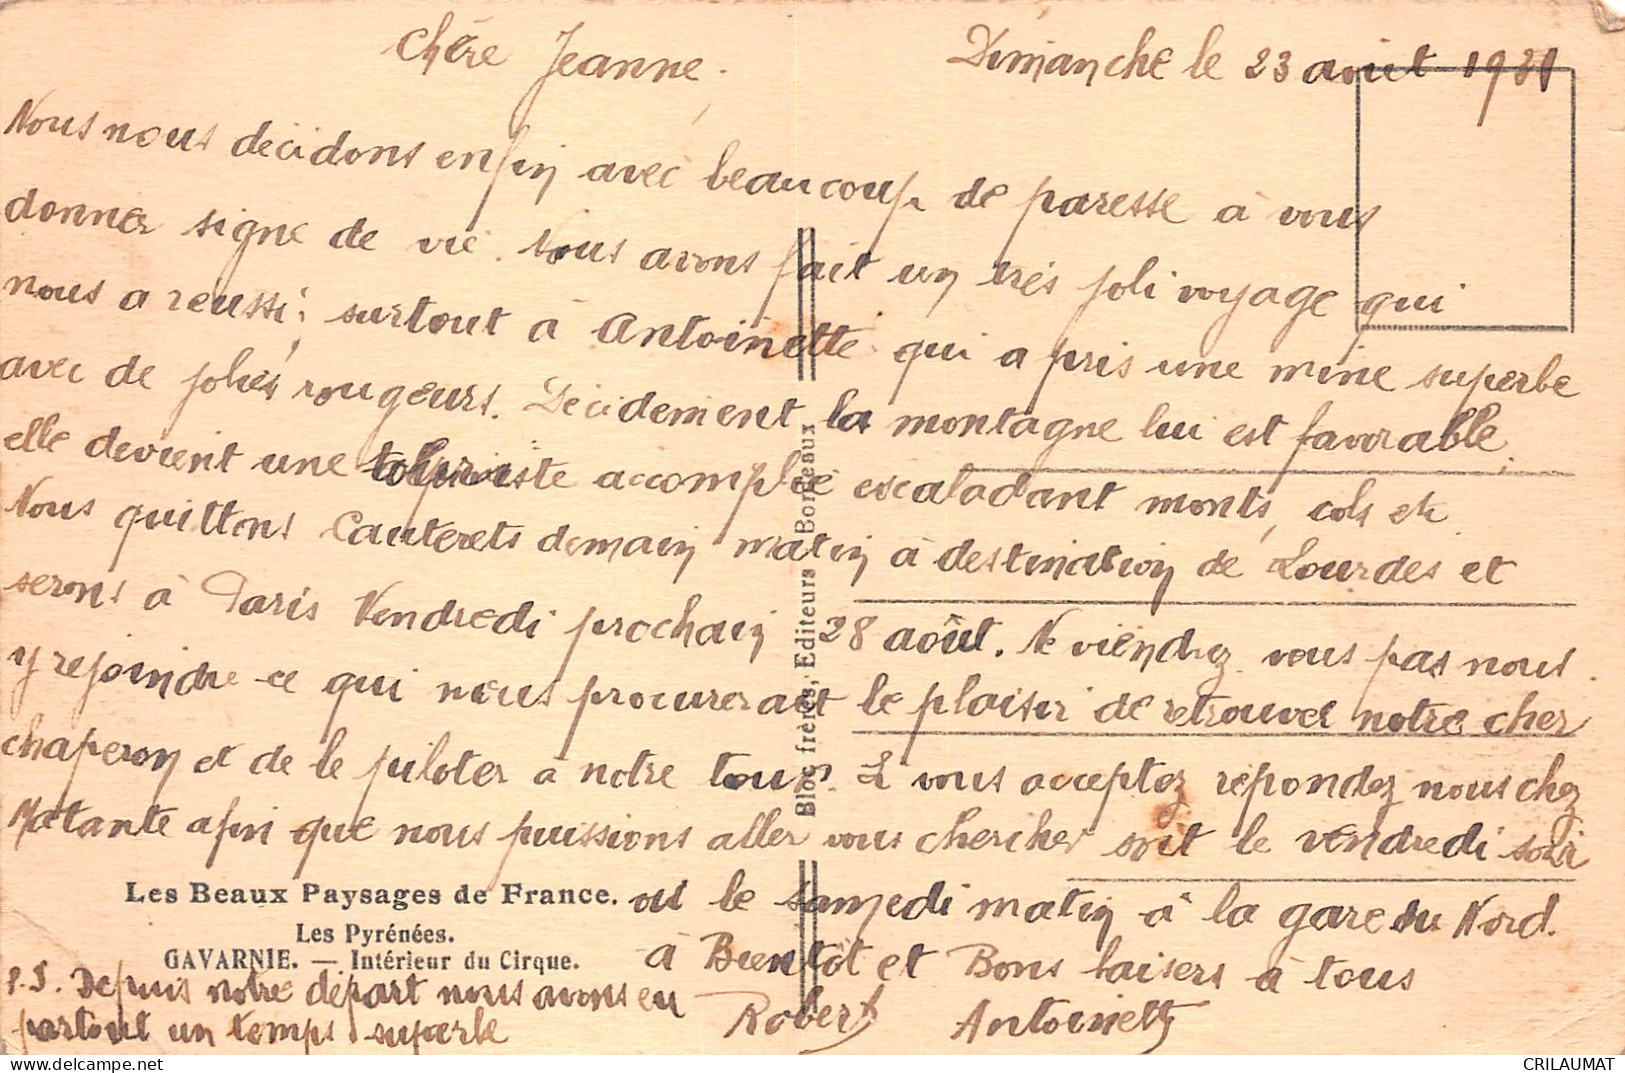 Dimanche le 23 août 1931
Chère Jeanne,
Nous nous décidons enfin avec beaucoup de paresse à vous
donner signe de vie. Nous avons fait un très joli voyage qui
nous a réussi, surtout à Antoinette qui a pris une mine superbe
avec de jolies rougeurs. Décidement la montagne lui est favorable,
elle devient une touriste accomplie escaladant monts, cols etc
Nous quittons Cauterets demain matin à destination de Lourdes et
serons à Paris Vendredi prochain 28 août. Ne viendrez vous pas nous
y rejoindre ce qui nous procurerait le plaisir de retrouver notre cher
chaperon et de le piloter à notre tour. Si vous acceptez répondez nous chez
Matante afin que nous puissions aller vous chercher soit le vendredi soir
ou le samedi matin à la gare du Nord.
à Bientôt et Bons baisers à tous
Robert Antoinette
P.S. Depuis notre départ nous avons eu
partout un temps superbe
Les Beaux Paysages de France.
Les Pyrénées.
GAVARNIE. — Intérieur du Cirque.
Bloc frères, Editeurs Bordeaux
delcampe.net
CRILAUMAT